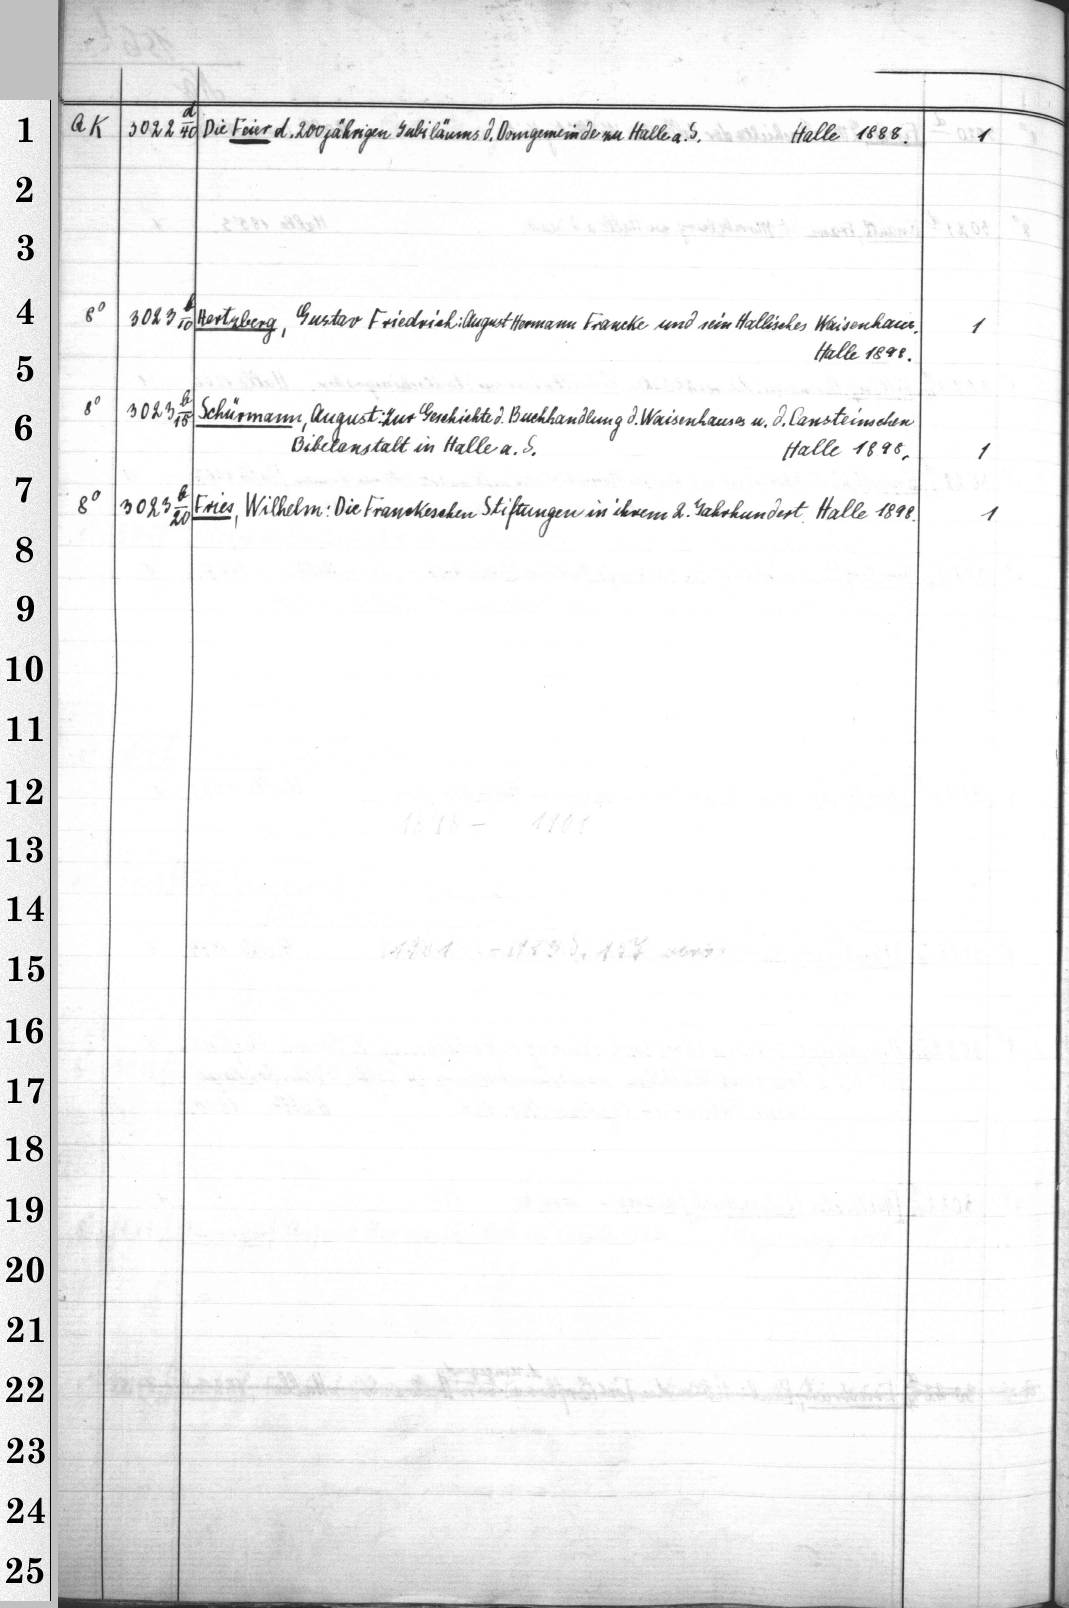 1 aK 3022 d/40 Die Feier d. 200jährigen Jubiläums d. Domgemeinde zu Halle a. S. Halle 1888. 1
2
3
4 8° 3023 b/10 Hertzberg, Gustav Friedrich: August Hermann Francke und sein Hallisches Waisenhaus. 1
Halle 1898.
5
6 8° 3023 b/15 Schürmann, August: Zur Geschichte d. Buchhandlung d. Waisenhauses u. d. Cansteinschen
Bibelanstalt in Halle a. S. Halle 1898. 1
7 8° 3023 b/20 Fries, Wilhelm: Die Franckeschen Stiftungen in ihrem 2. Jahrhundert. Halle 1898. 1
8
9
10
11
12
13
14
15
16
17
18
19
20
21
22
23
24
25